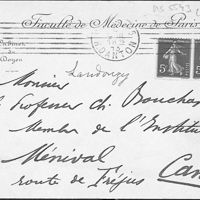 AS 5543
Faculté de Médecine de Paris
Cabinet
du
Doyen
Landouzy
Monsieur
Professeur Ch. Bouchar
Membre de l'Institut
Ménival
route de Fréjus Can